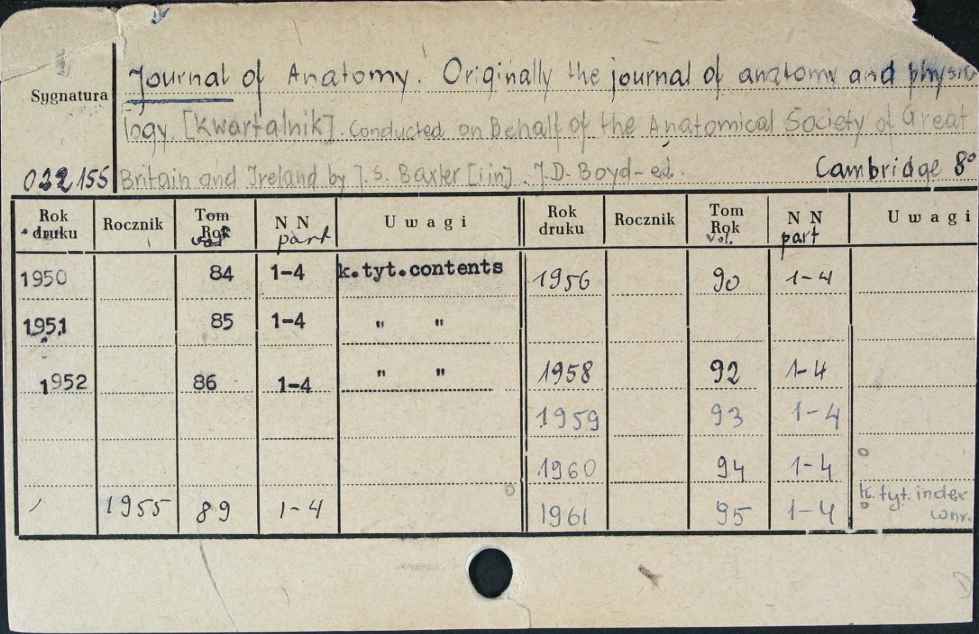 Journal of Anatomy. Originally the journal of anatomy and physio-
Sygnatura
logy. [Kwartalnik]. Conducted on Behalf of the Anatomical Society of Great
032155 Britain and Ireland by J.S. Baxter [i in]. J.D. Boyd-ed. Cambridge 8°
Rok druku Rocznik Tom Rok vol. N N part Uwagi Rok druku Rocznik Tom Rok vol. N N part Uwagi
1950 84 1-4 k.tyt.contents 1956 90 1-4
1951 85 1-4 " "
1952 86 1-4 " " 1958 92 1-4
1959 93 1-4
1960 94 1-4
1955 89 1-4 1961 95 1-4 k.tyt. index
w nr.